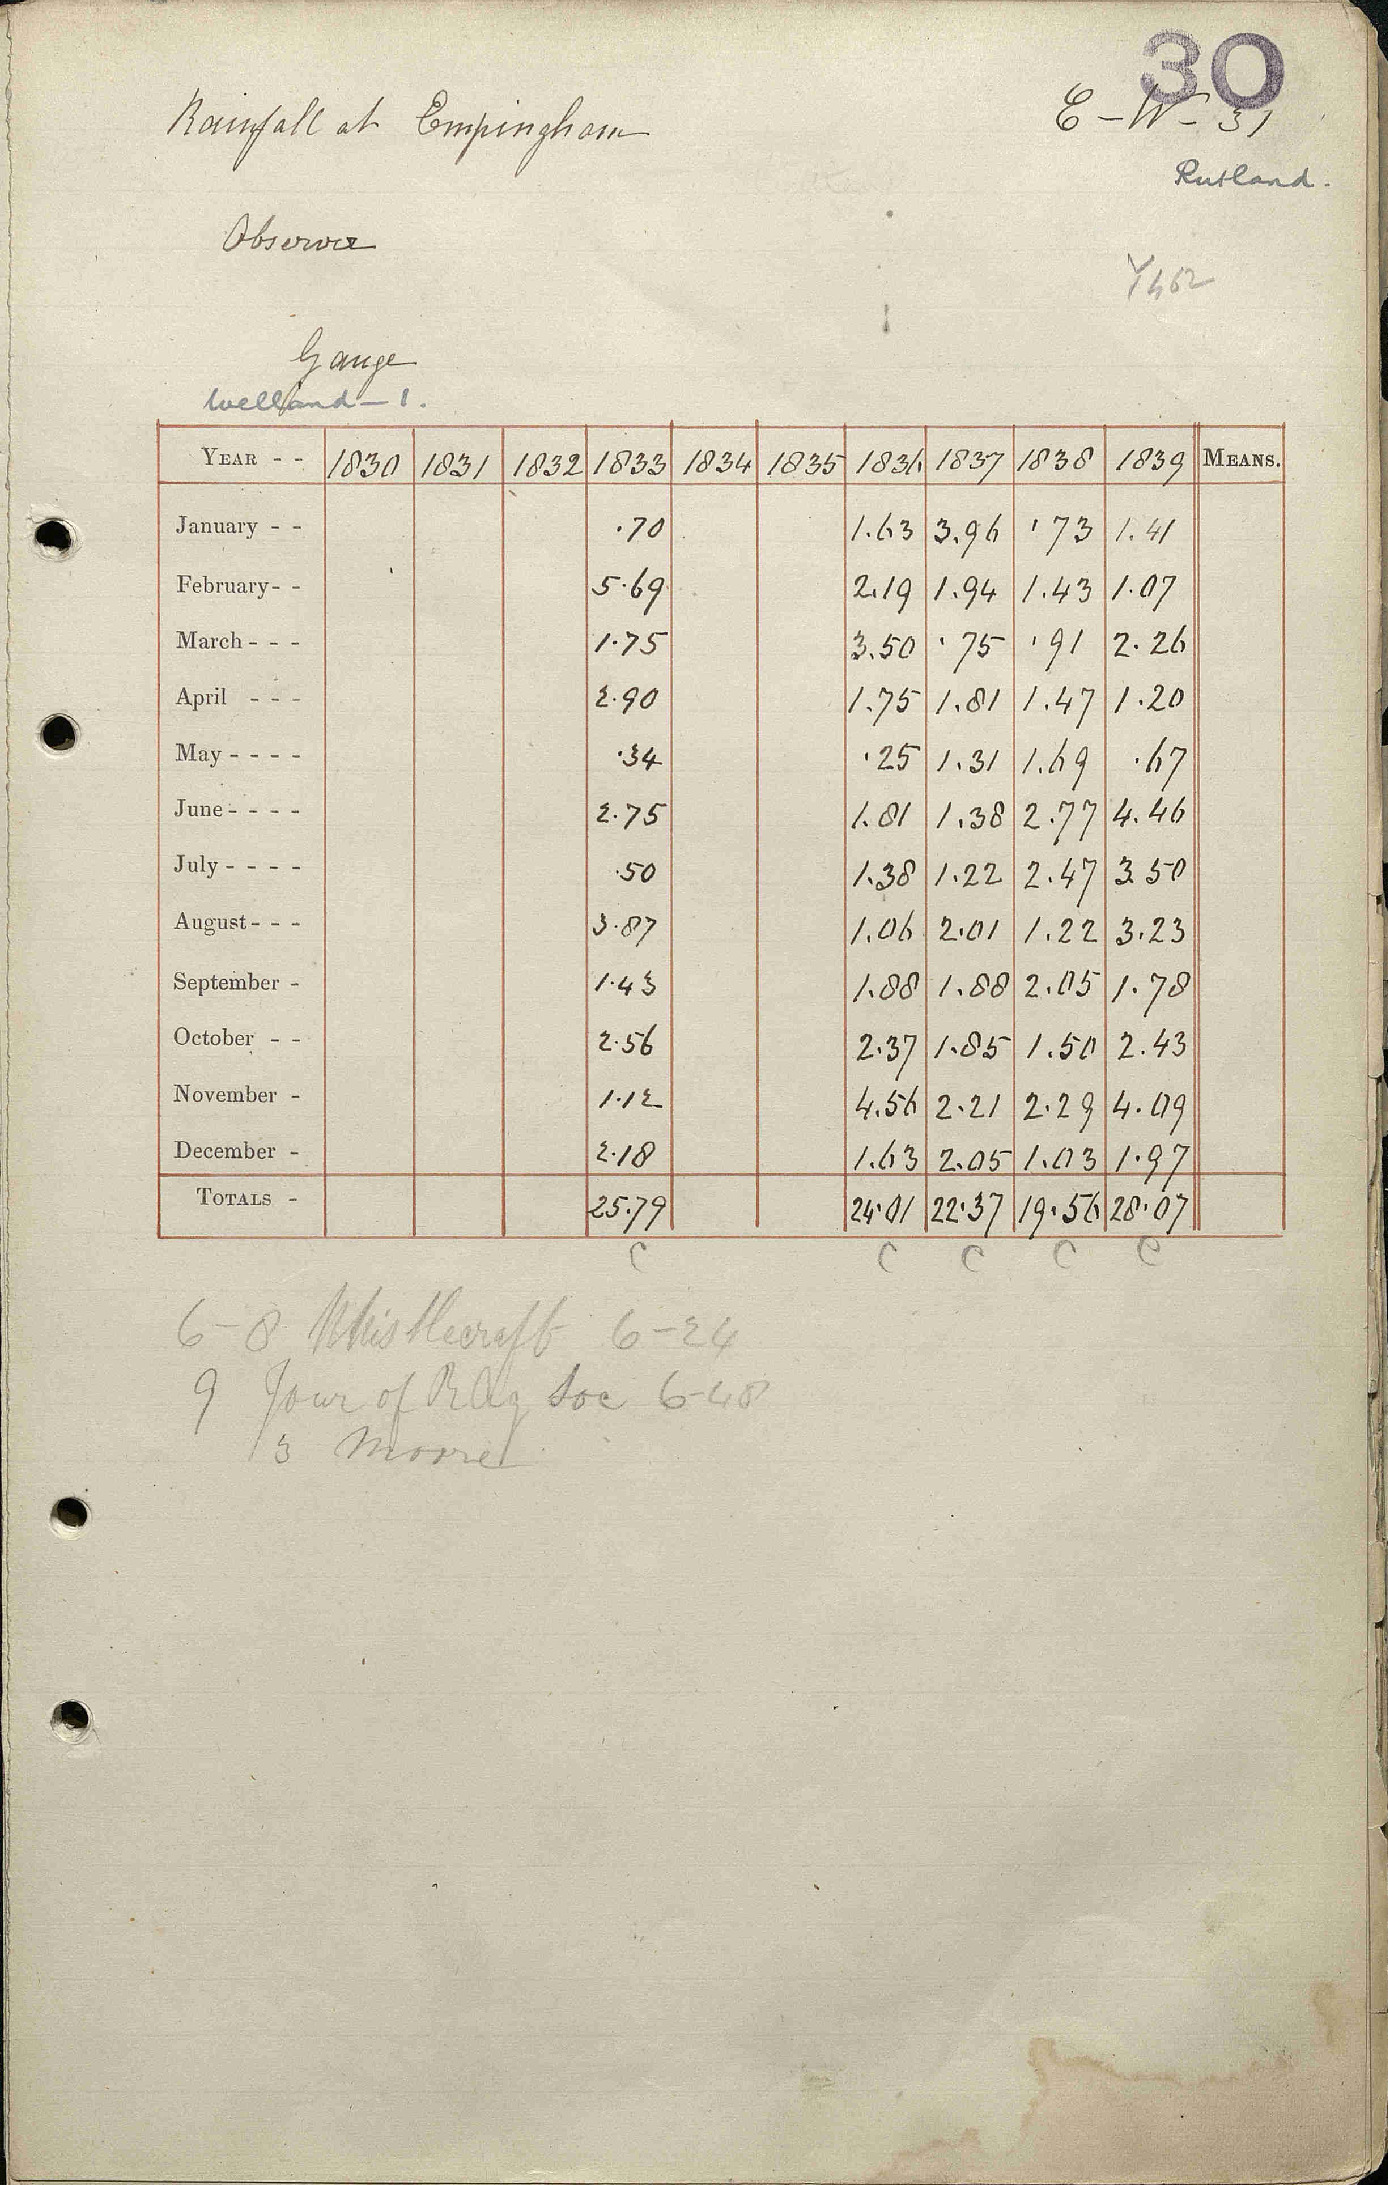 30
Rainfall at Empingham E-W-31
Rutland.
Observer
Gauge
Welland-1.
YEAR - - 1830 1831 1832 1833 1834 1835 1836 1837 1838 1839 MEANS.
January - - .70 1.63 3.96 .73 1.41
February - - 5.69 2.19 1.94 1.43 1.07
March - - - 1.75 3.50 .75 .91 2.26
April - - - 2.90 1.75 1.81 1.47 1.20
May - - - - .34 .25 1.31 1.69 .67
June - - - - 2.75 1.81 1.38 2.77 4.46
July - - - - .50 1.38 1.22 2.47 3.50
August - - - 3.87 1.06 2.01 1.22 3.23
September - 1.43 1.88 1.88 2.05 1.78
October - - 2.56 2.37 1.85 1.50 2.43
November - 1.12 4.56 2.21 2.29 4.09
December - 2.18 1.63 2.05 1.03 1.97
TOTALS - 25.79 24.01 22.37 19.56 28.07
C C C C C
6-8 Whistlecraft 6-24
9 Jour of R Ag Soc 6-48
3 Moore